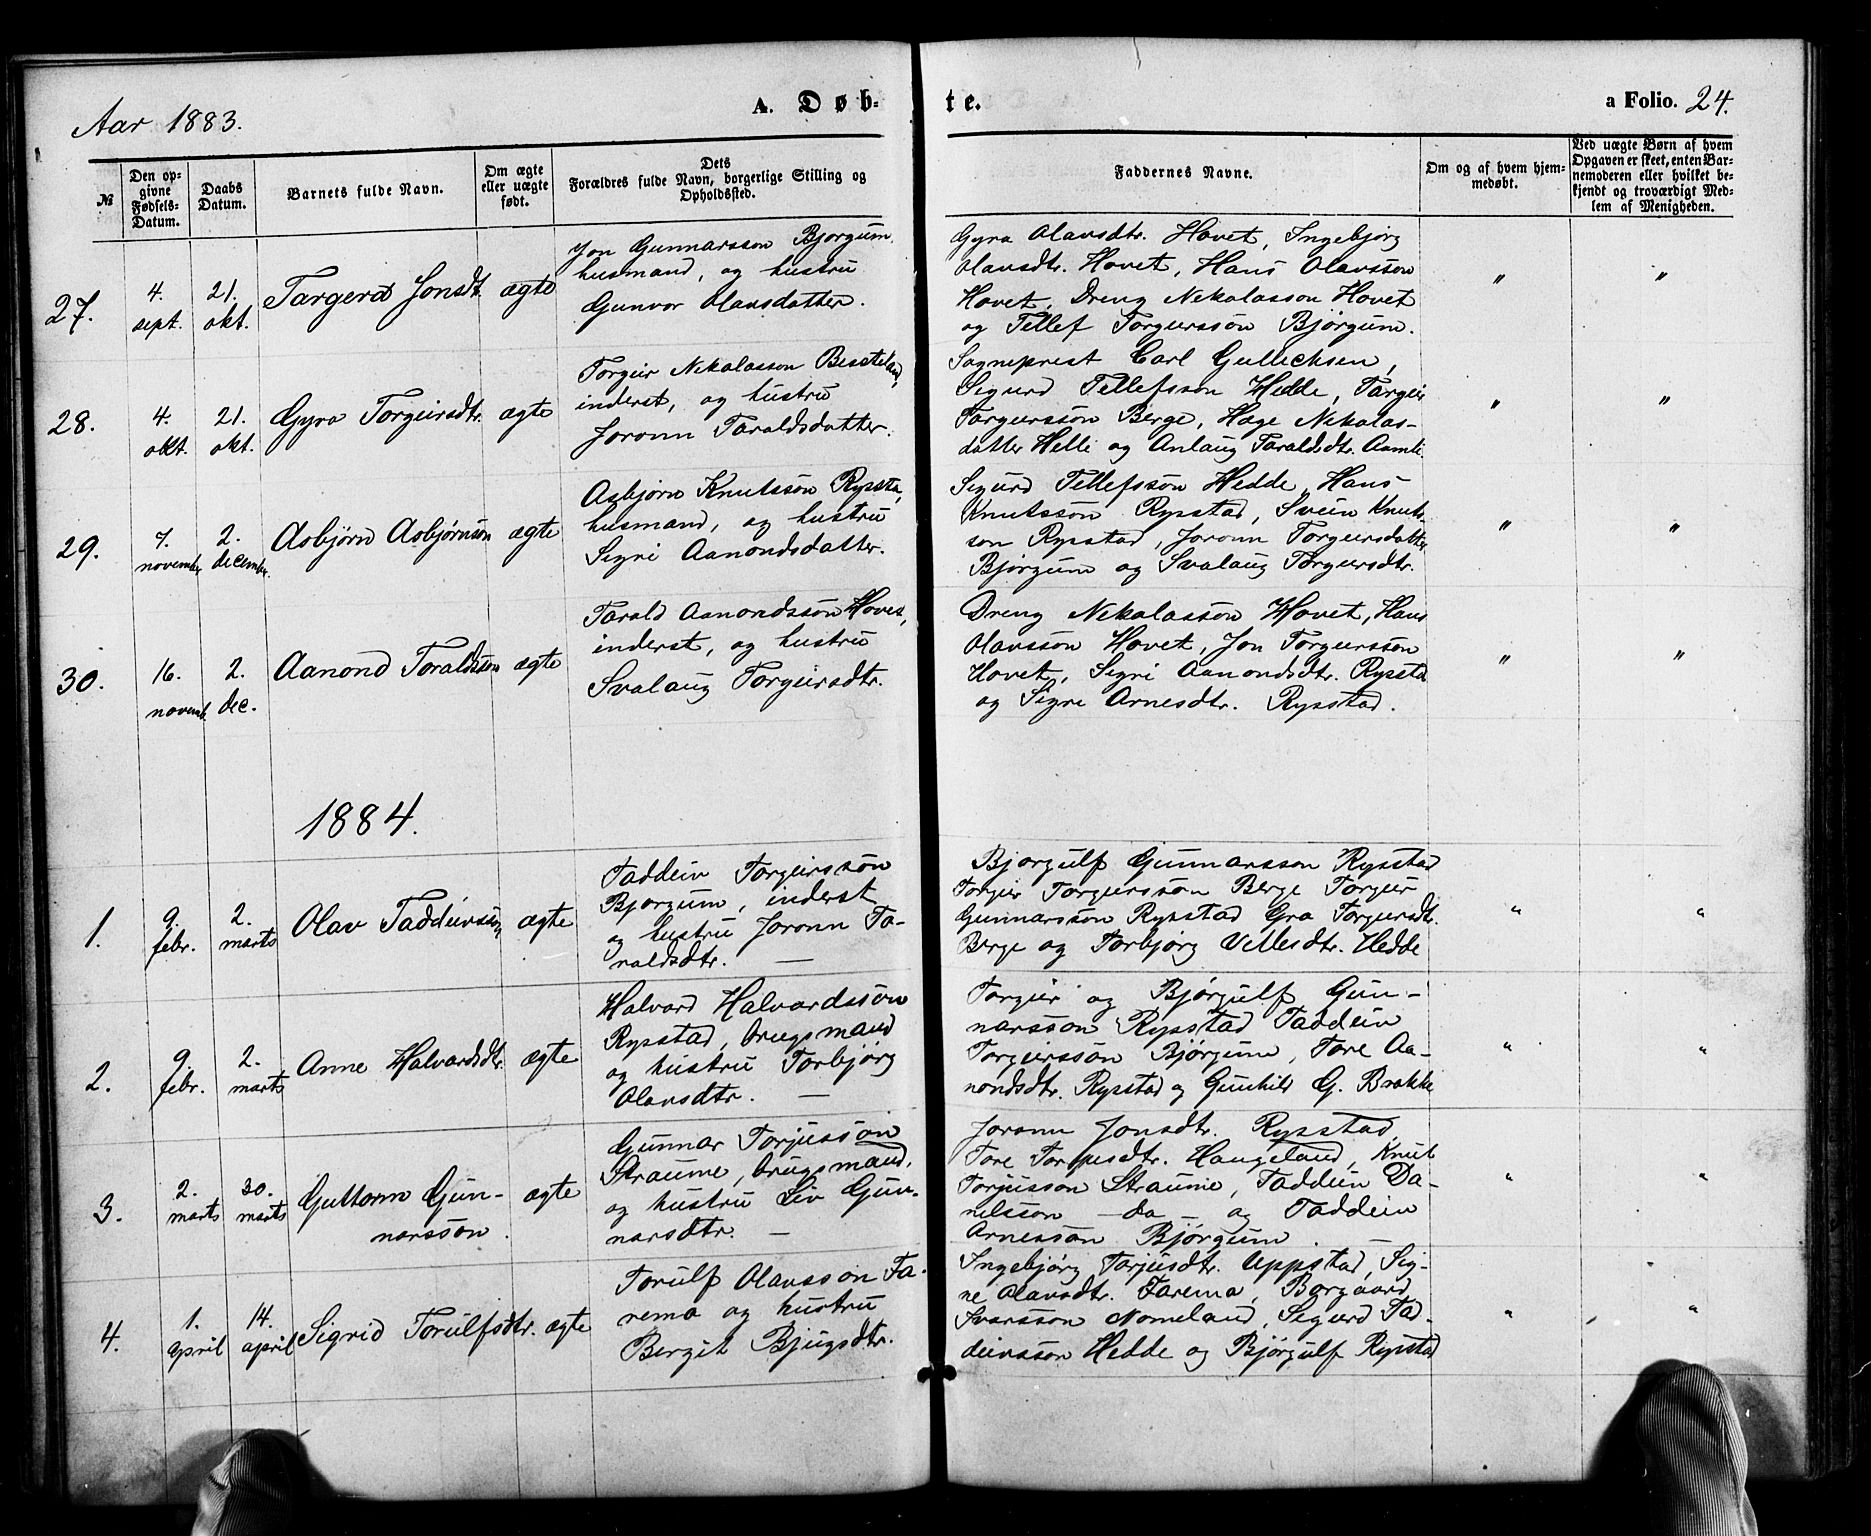 Aar 1883.
A. Døb-
te.
a Folio. 24.
№
Den op-
givne
Fødsels-
Datum.
Daabs
Datum.
Barnets fulde Navn.
Om ægte
eller uægte
født.
Dets
Forældres fulde Navn, borgerlige Stilling og
Opholdssted.
Faddernes Navne.
Om og af hvem hjem-
medøbt.
Ved uægte Børn af hvem
Opgaven er skeet, enten Bar-
nemoderen eller hvilket be-
kjendt og troværdigt Med-
lem af Menigheden.
27.
4.
sept.
21.
okt.
Targerd Jonsdt.
ægte
Jon Gunnarsson Bjørgum,
husmand, og hustru
Gunvor Olavsdatter.
Gyro Olavsdtr. Hovet, Ingebjørg
Olavsdtr. Hovet, Hans Olavsson
Hovet, Dreng Nekolasson Hovet
og Tellef Torgeirsson Bjørgum.
"
"
28.
4.
okt.
21.
okt.
Gyro Torgeirsdtr.
ægte
Torgeir Nekolasson
inderst, og hustru
Joronn Taraldsdatter.
Sogneprest Carl Gullechsen,
Sigurd Tellefsson Hedde, Targeir
Targeirssøn Berge, Hoge Nekolas-
datter Helle og Anlaug Taraldsdtr. Aamli.
"
"
29.
7.
november
2.
december.
Asbjørn Asbjørnsøn
ægte
Asbjørn Knutssøn Rysstad,
husmand, og hustru
Sigri Aanondsdatter.
Sigurd Tellefssøn Hedde, Hans
Knutssøn Rysstad, Svein Knuts-
søn Rysstad, Joronn Torgeirsdatter
Bjørgum og Svalaug Torgeirsdtr.
"
"
30.
16.
novemb.
2.
dec.
Aanond Taraldssøn
ægte
Tarald Aanondssøn Hovet,
inderst, og hustru
Svalaug Torgeirsdtr.
Dreng Nekolassøn Hovet, Hans
Olavssøn Hovet, Jon Torgeirssøn
Hovet, Sigri Aanondsdtr. Rysstad
og Sigri Arnesdtr. Rysstad.
"
"
1884.
1.
9.
febr.
2.
marts
Olav Taddeivsøn
ægte
Taddeiv Torgeirssøn
Bjorgum, inderst
og hustru Joronn Ta-
raldsdtr. —
Bjorgulf Gunnarsson Rysstad
Torgeir Torgeirssøn Berge Torgeir
Gunnarssøn Rysstad Gro Torgeirsdtr.
Berge og Torbjørg Villesdtr. Hedde
"
"
2.
9.
febr.
2.
marts
Anne Halvardsdtr.
ægte
Halvard Halvardssøn
Rysstad, brugsmand
og hustru Torbjørg
Olavsdtr. —
Torgeir og Bjørgulf Gun-
narssøn Rysstad Taddeiv
Torgeirssøn Bjørgum, Tore Aa-
nondsdtr. Rysstad og Gunhild G. Brokke
"
"
3.
2.
marts
30.
marts
Guttorm Gun-
narssøn.
ægte
Gunnar Torjussøn
Straume, brugsmand,
og hustru Liv Gun-
narsdtr. —
Joronn Jonsdtr. Rysstad,
Tore Torjusdtr. Haugeland, Knut
Torjusson Straume, Taddeiv Da-
nielssøn — do — og Taddeiv
Arnessøn Bjørgum. —
"
"
4.
1.
april
14.
april
Sigrid Torulfsdtr.
ægte
Torulf Olavssøn Fa-
rema og hustru
Bergit Bjugsdtr.
Ingebjørg Torjusdtr. Uppstad, Sig-
ne Olavsdtr. Farema, Borgaard
Ivarssøn Nomeland, Sigurd Tad-
deivssøn Hedde og Bjørgulf Rysstad
"
"